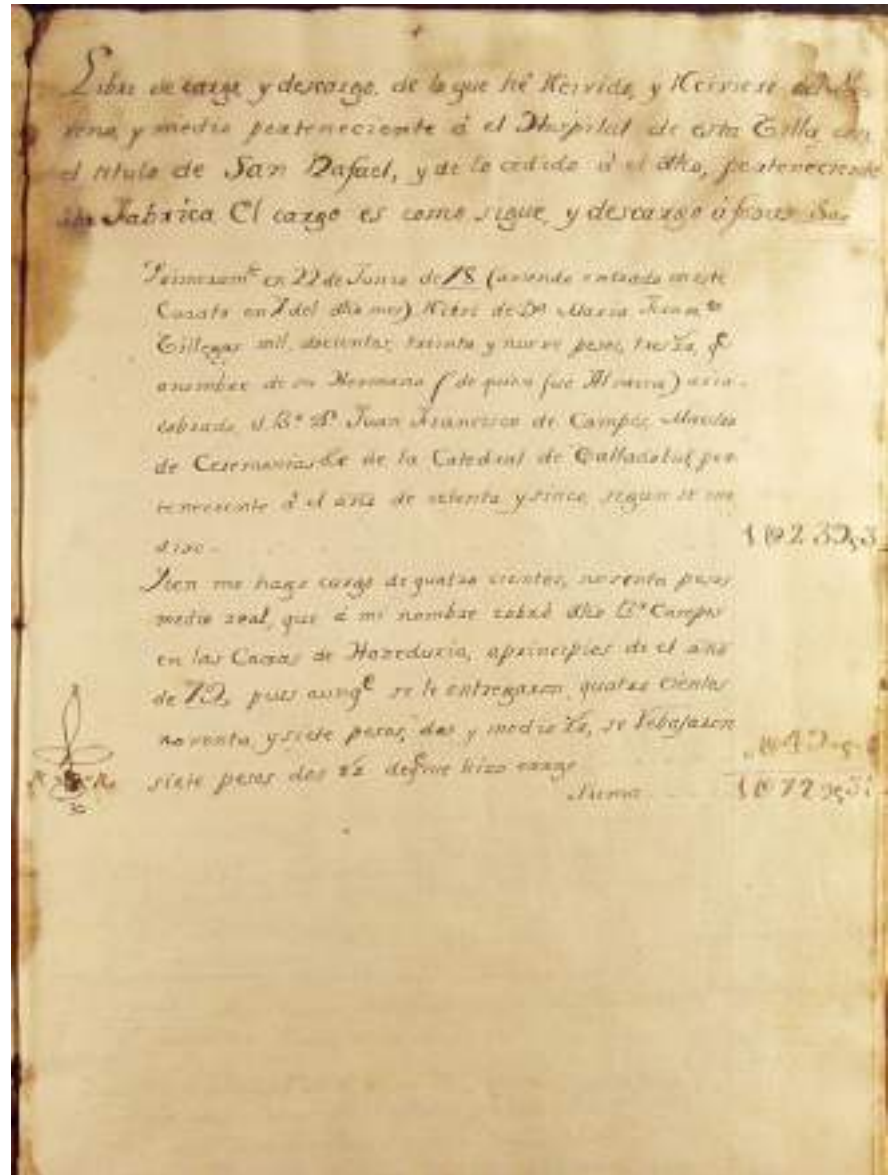 Libro de cargo y descargo, de lo que hé Recivido, y Reciviese del No-
veno, y medio perteneciente á el Hospital de esta Villa con
el titulo de San Rafael, y de lo cedido á el dho, perteneciente
Fabrica. El cargo es como sigue, y descargo á foxas
Primeram.te en 22 de Junio de 78 (aviendo entrado en este
Curato en 7 del dho mes) Recivi de D.a Maria
Villegas mil, docientos, treinta y nueve pesos, tres rs, q.e
a nombre de su Hermano (de quien fue Alvacea) avia
cobrado, el B.r D.n Juan Francisco de Campos, Maestro
de Ceremonias &c de la Catedral de Valladolid, per-
teneciente á el año de setenta y sinco, segun se me
dixo.
1 239,3
Iten me hago cargo de quatro cientos, noventa pesos
medio real, que á mi nombre cobró dho B.r Campos
en las Caxas de Hazeduria, a principios de el año
de 79, pues aunq.e se le entregaron, quatro cientos
noventa, y siete pesos, dos y medio rs, se rebajaron
siete pesos dos rs de que hizo cargo
Suma